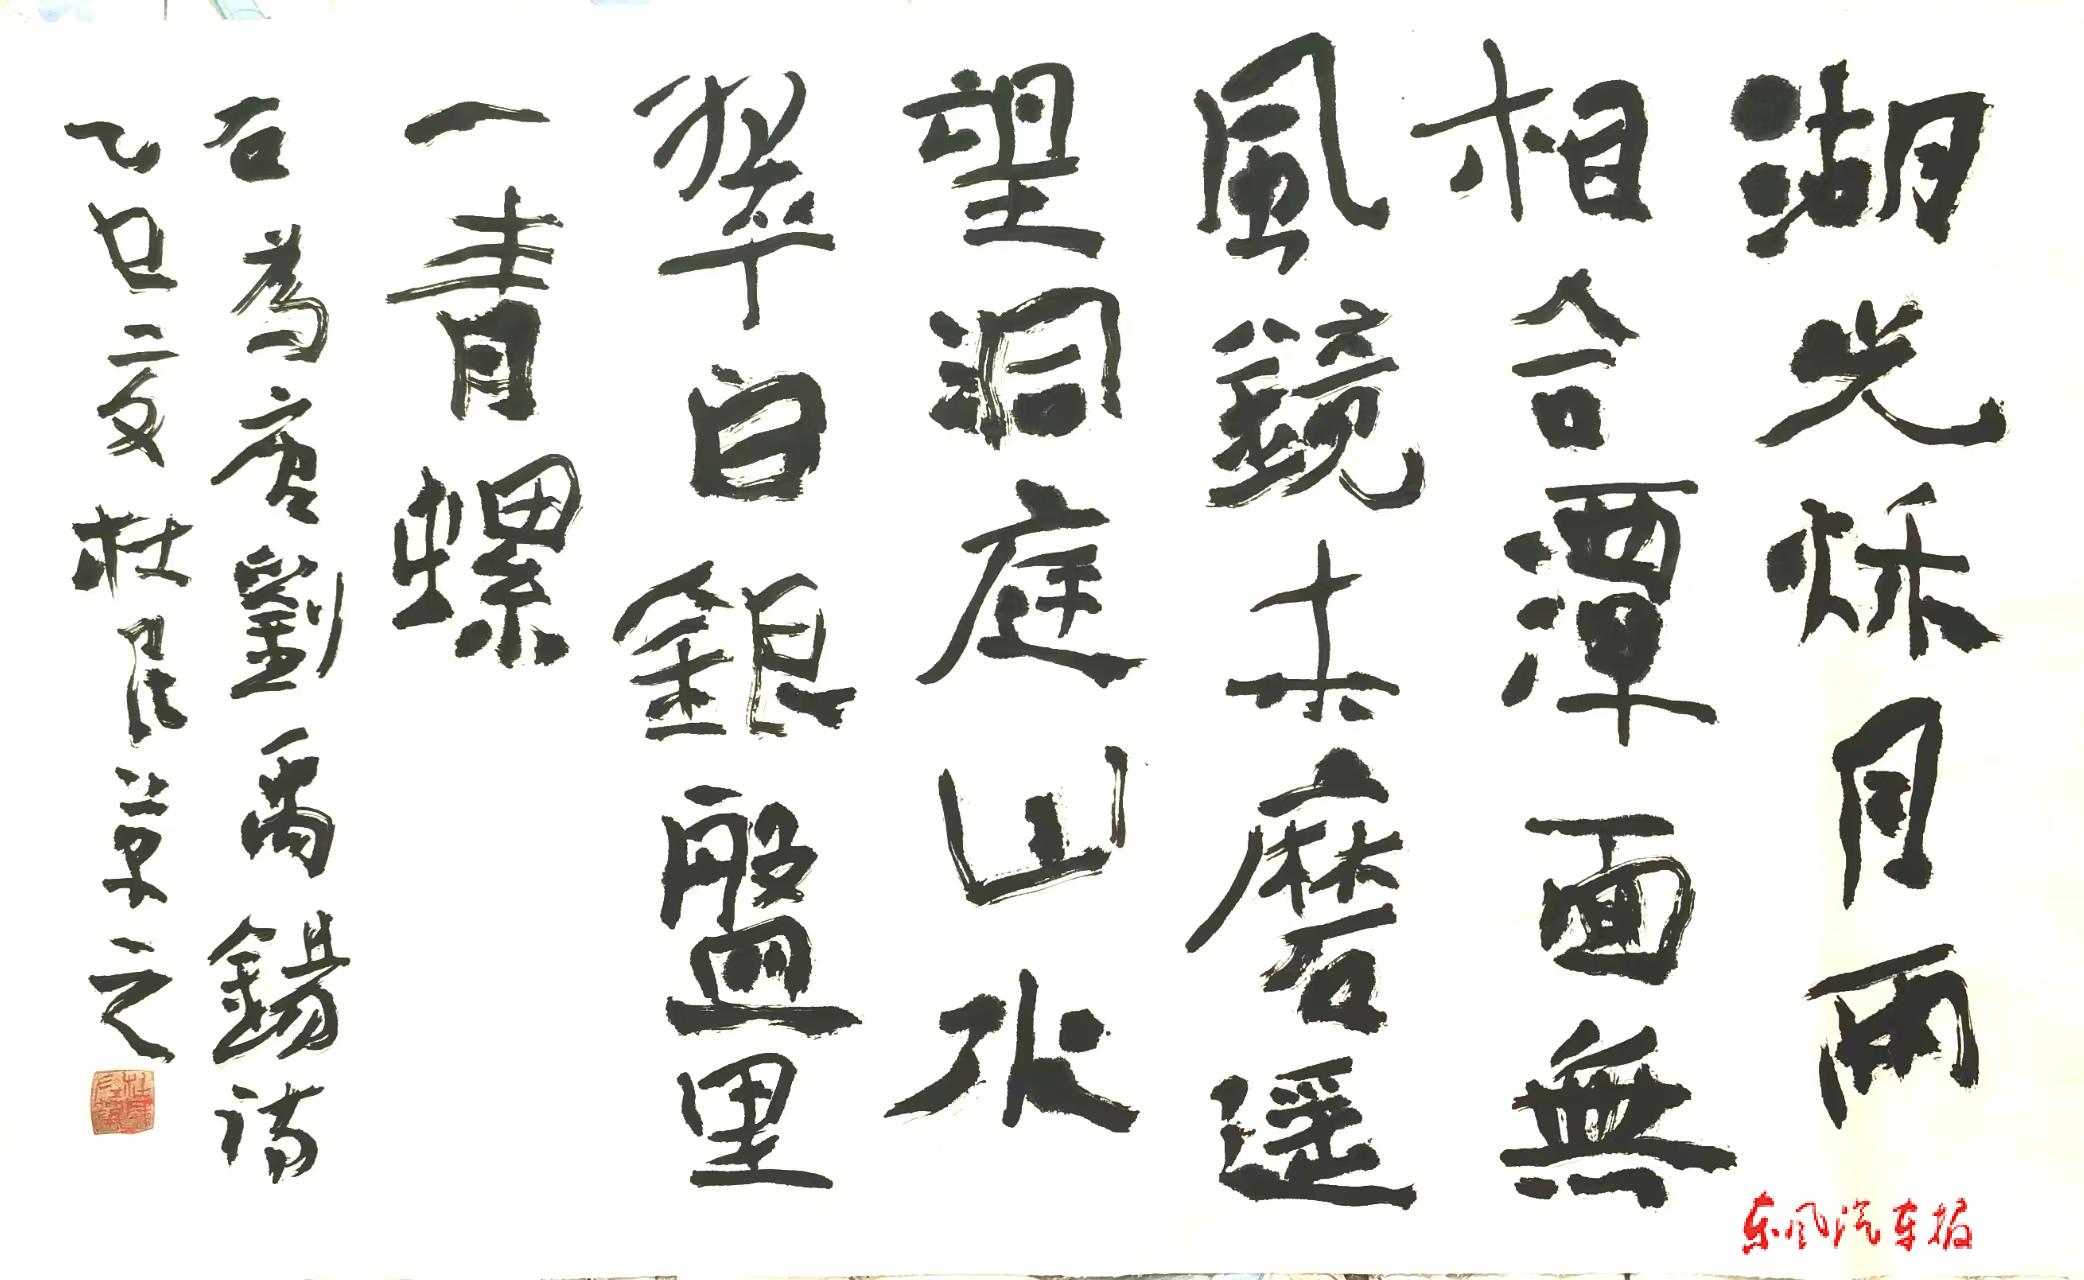 湖光秌月兩
相合潭面無
風鏡未磨遥
望洞庭山水
翠白銀盤里
一青螺
右為唐劉禹錫詩
乙巳夏杜民草之
东风汽车报